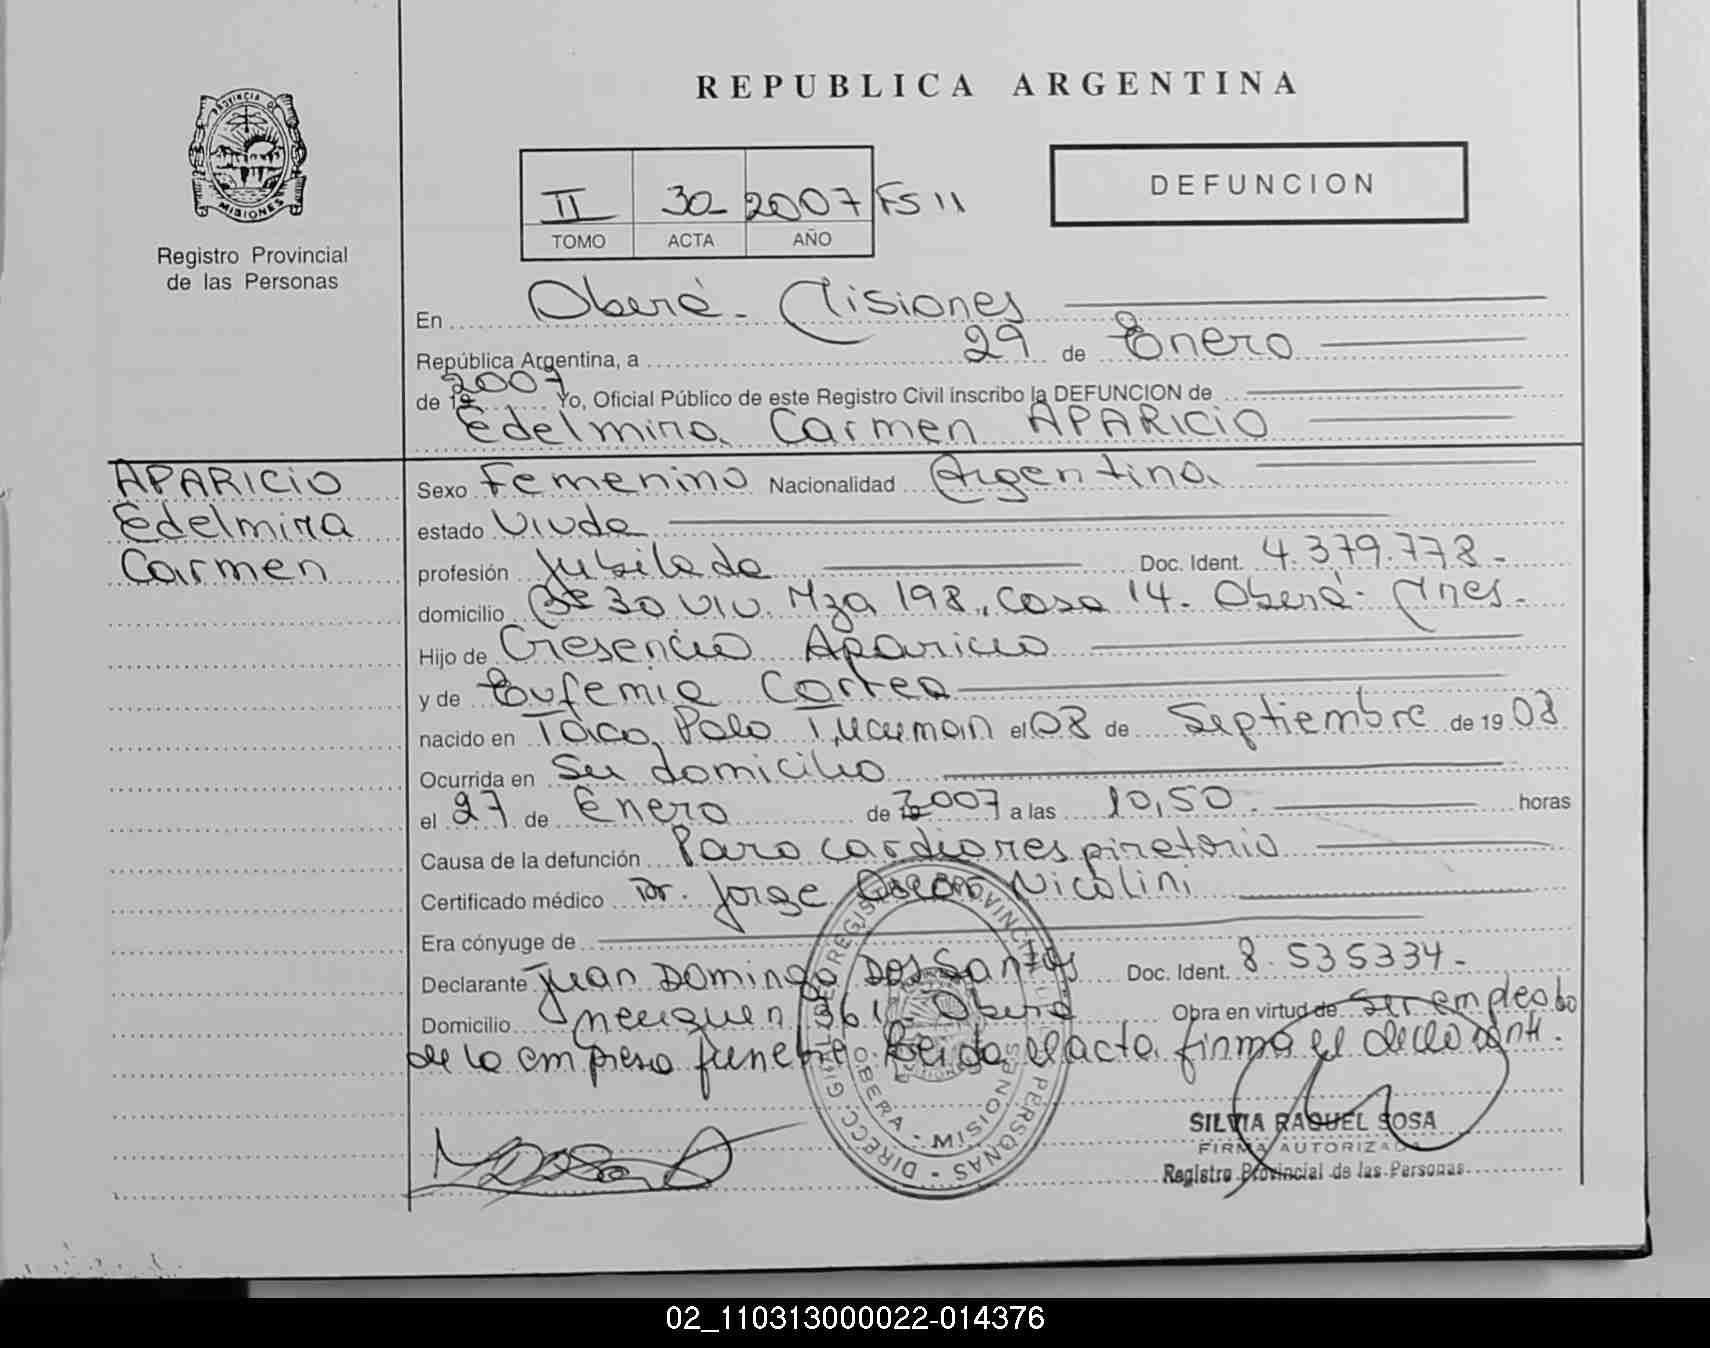 REPUBLICA ARGENTINA
PROVINCIA DE
MISIONES
Registro Provincial
de las Personas
II 30 2007 FS 11
TOMO ACTA AÑO
DEFUNCION
En Oberá - Misiones
República Argentina, a 29 de Enero
de 19 2007 Yo, Oficial Público de este Registro Civil inscribo la DEFUNCION de
Edelmira Carmen APARICIO
APARICIO
Edelmira
Carmen
Sexo Femenino Nacionalidad Argentina
estado Viuda
profesión Jubilada Doc. Ident. 4.379.778-
domicilio Bº 30 viv. Mza 198, Casa 14. Oberá- Mnes.
Hijo de Cresencio Aparicio
y de Eufemia Correa
nacido en Taco Palo Tucuman el 08 de Septiembre de 19 08
Ocurrida en Su domicilio
el 27 de Enero de 2007 a las 10,50. horas
Causa de la defunción Paro cardiorespiratorio
Certificado médico Dr. Jorge Oscar Nicolini
Era cónyuge de
Declarante Juan Domingo Dos Santos Doc. Ident. 8.535334-
Domicilio Neuquen 361. Oberá Obra en virtud de Ser empleado
de la empresa funebre Leida el acta firma el declarante.
DIRECC. GRAL. DE REGISTRO PROVINCIAL PERSONAS
OBERA - MISIONES
SILVIA RAQUEL SOSA
FIRMA AUTORIZADA
Registro Provincial de las Personas
02_110313000022-014376